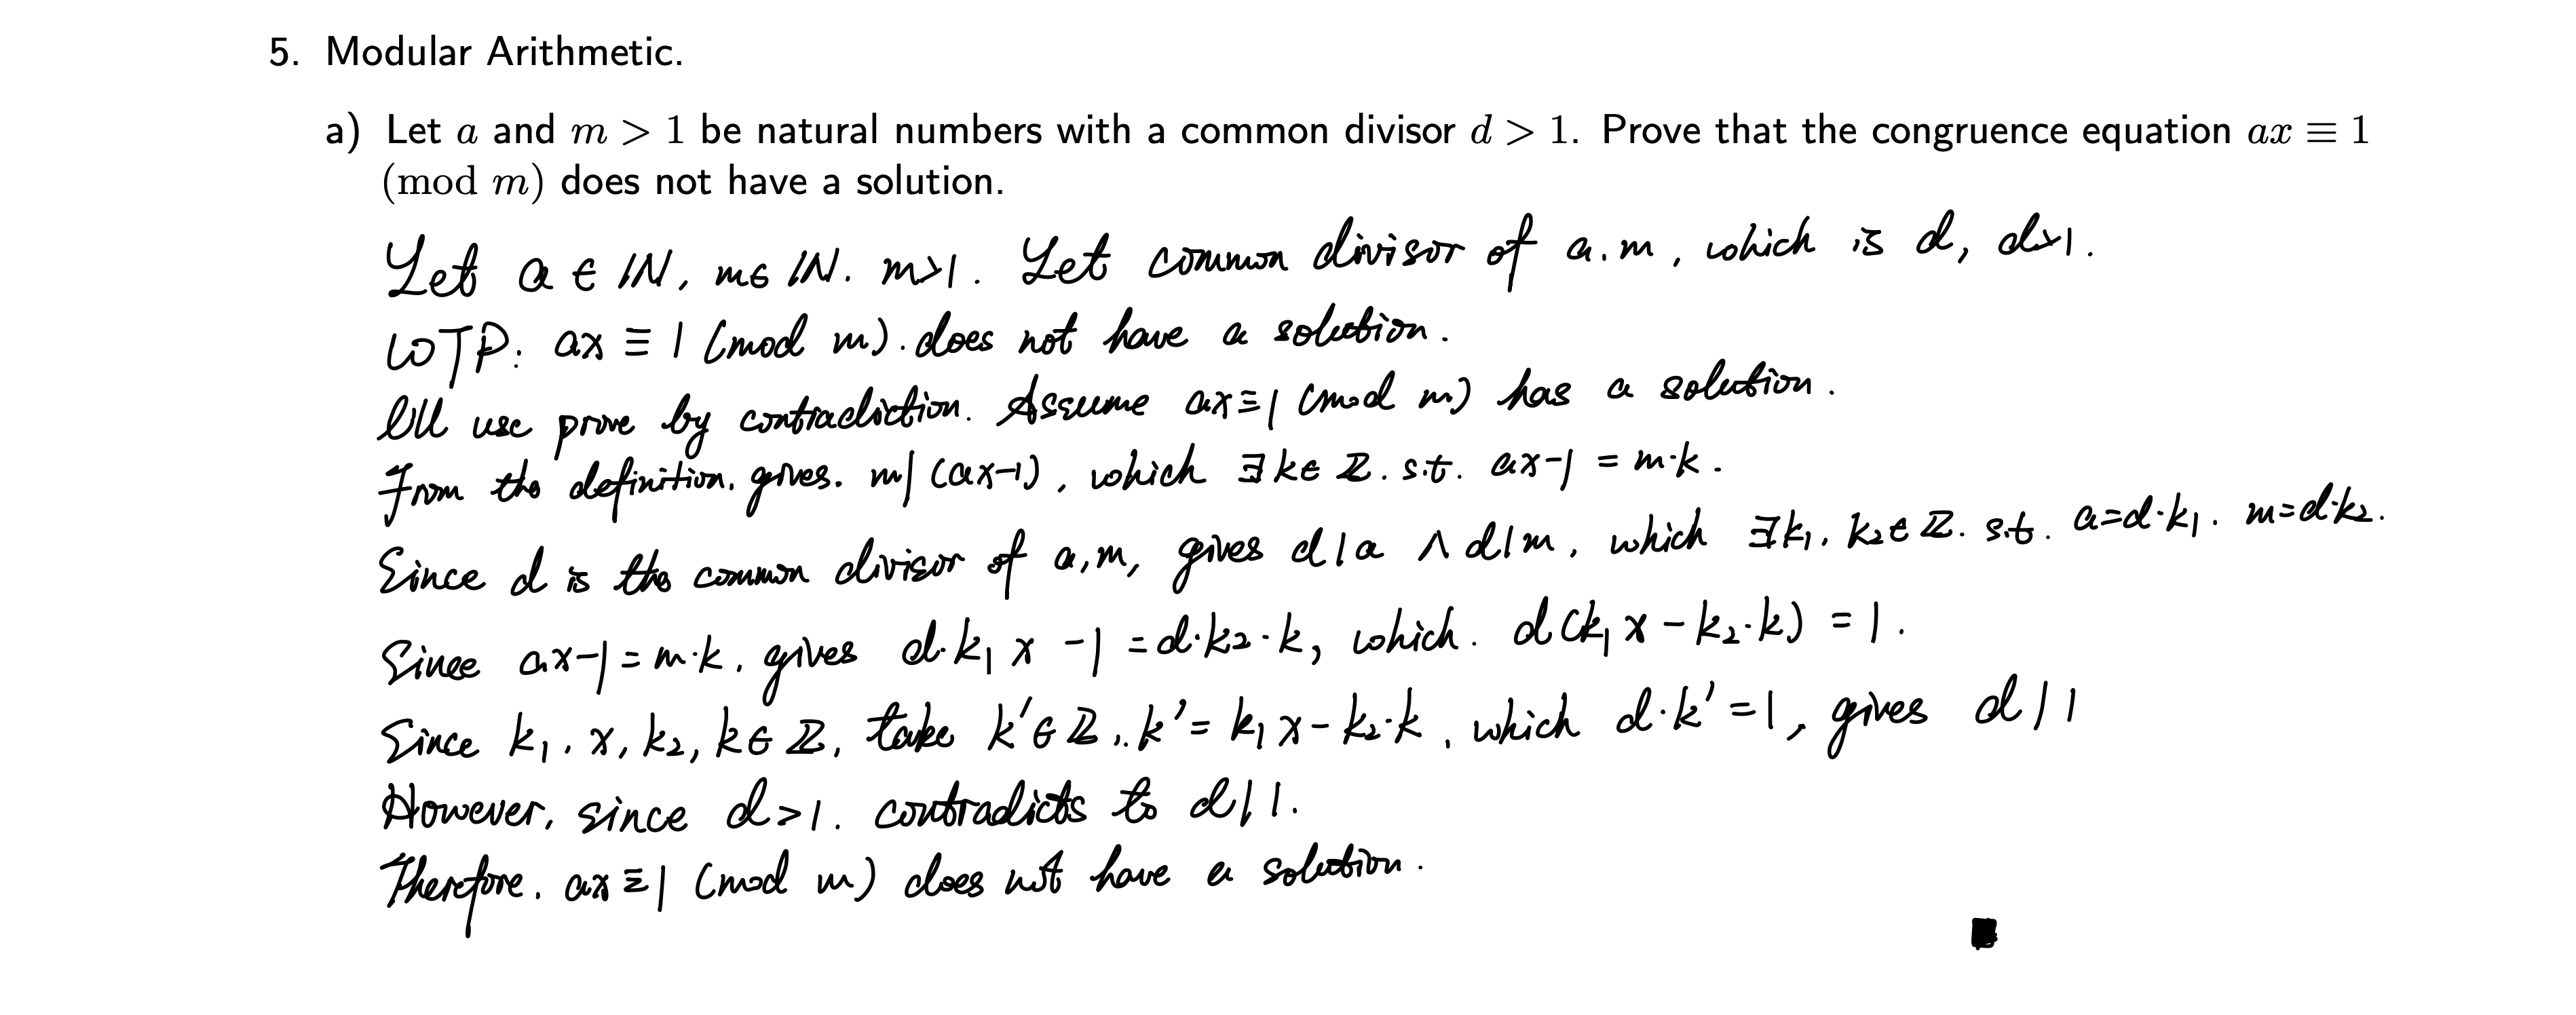 5. Modular Arithmetic.
a) Let a and m > 1 be natural numbers with a common divisor d > 1. Prove that the congruence equation ax ≡ 1
(mod m) does not have a solution.
Let a ∈ ℕ, m ∈ ℕ. m>1. Let common divisor of a.m, which is d, d>1.
WTP: ax ≡ 1 (mod m). does not have a solution.
I'll use prove by contradiction. Assume ax≡1 (mod m) has a solution.
From the definition. gives. m|(ax-1), which ∃k∈ℤ. s.t. ax-1 = m·k.
Since d is the common divisor of a,m, gives d|a ∧ d|m, which ∃k₁, k₂∈ℤ. s.t. a=d·k₁. m=d·k₂.
Since ax-1=m·k, gives d·k₁x -1=d·k₂·k, which. d(k₁x-k₂·k) = 1.
Since k₁, x, k₂, k∈ℤ, take k'∈ℤ, k'= k₁x-k₂·k, which d·k'=1, gives d|1
However, since d>1. contradicts to d|1.
Therefore. ax≡1 (mod m) does not have a solution.